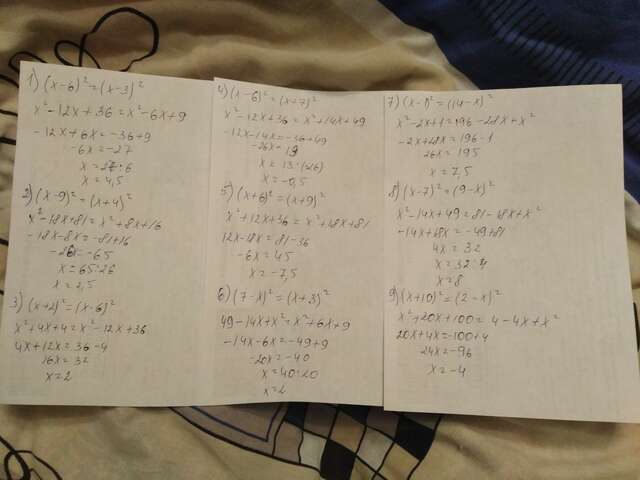 1) (x-6)²=(x-3)²
x²-12x+36=x²-6x+9
-12x+6x=-36+9
-6x=-27
x=27:6
x=4,5
2) (x-9)²=(x+4)²
x²-18x+81=x²+8x+16
-18x-8x=-81+16
-26x=-65
x=65:26
x=2,5
3) (x+2)²=(x-6)²
x²+4x+4=x²-12x+36
4x+12x=36-4
16x=32
x=2
4) (x-6)²=(x+7)²
x²-12x+36=x²+14x+49
-12x-14x=-36+49
-26x=13
x=13:(-26)
x=-0,5
5) (x+6)²=(x+9)²
x²+12x+36=x²+18x+81
12x-18x=81-36
-6x=45
x=-7,5
6) (7-x)²=(x+3)²
49-14x+x²=x²+6x+9
-14x-6x=-49+9
-20x=-40
x=40:20
x=2
7) (x-1)²=(14-x)²
x²-2x+1=196-28x+x²
-2x+28x=196-1
26x=195
x=7,5
8) (x-7)²=(9-x)²
x²-14x+49=81-18x+x²
-14x+18x=-49+81
4x=32
x=32:4
x=8
9) (x+10)²=(2-x)²
x²+20x+100=4-4x+x²
20x+4x=-100+4
24x=-96
x=-4